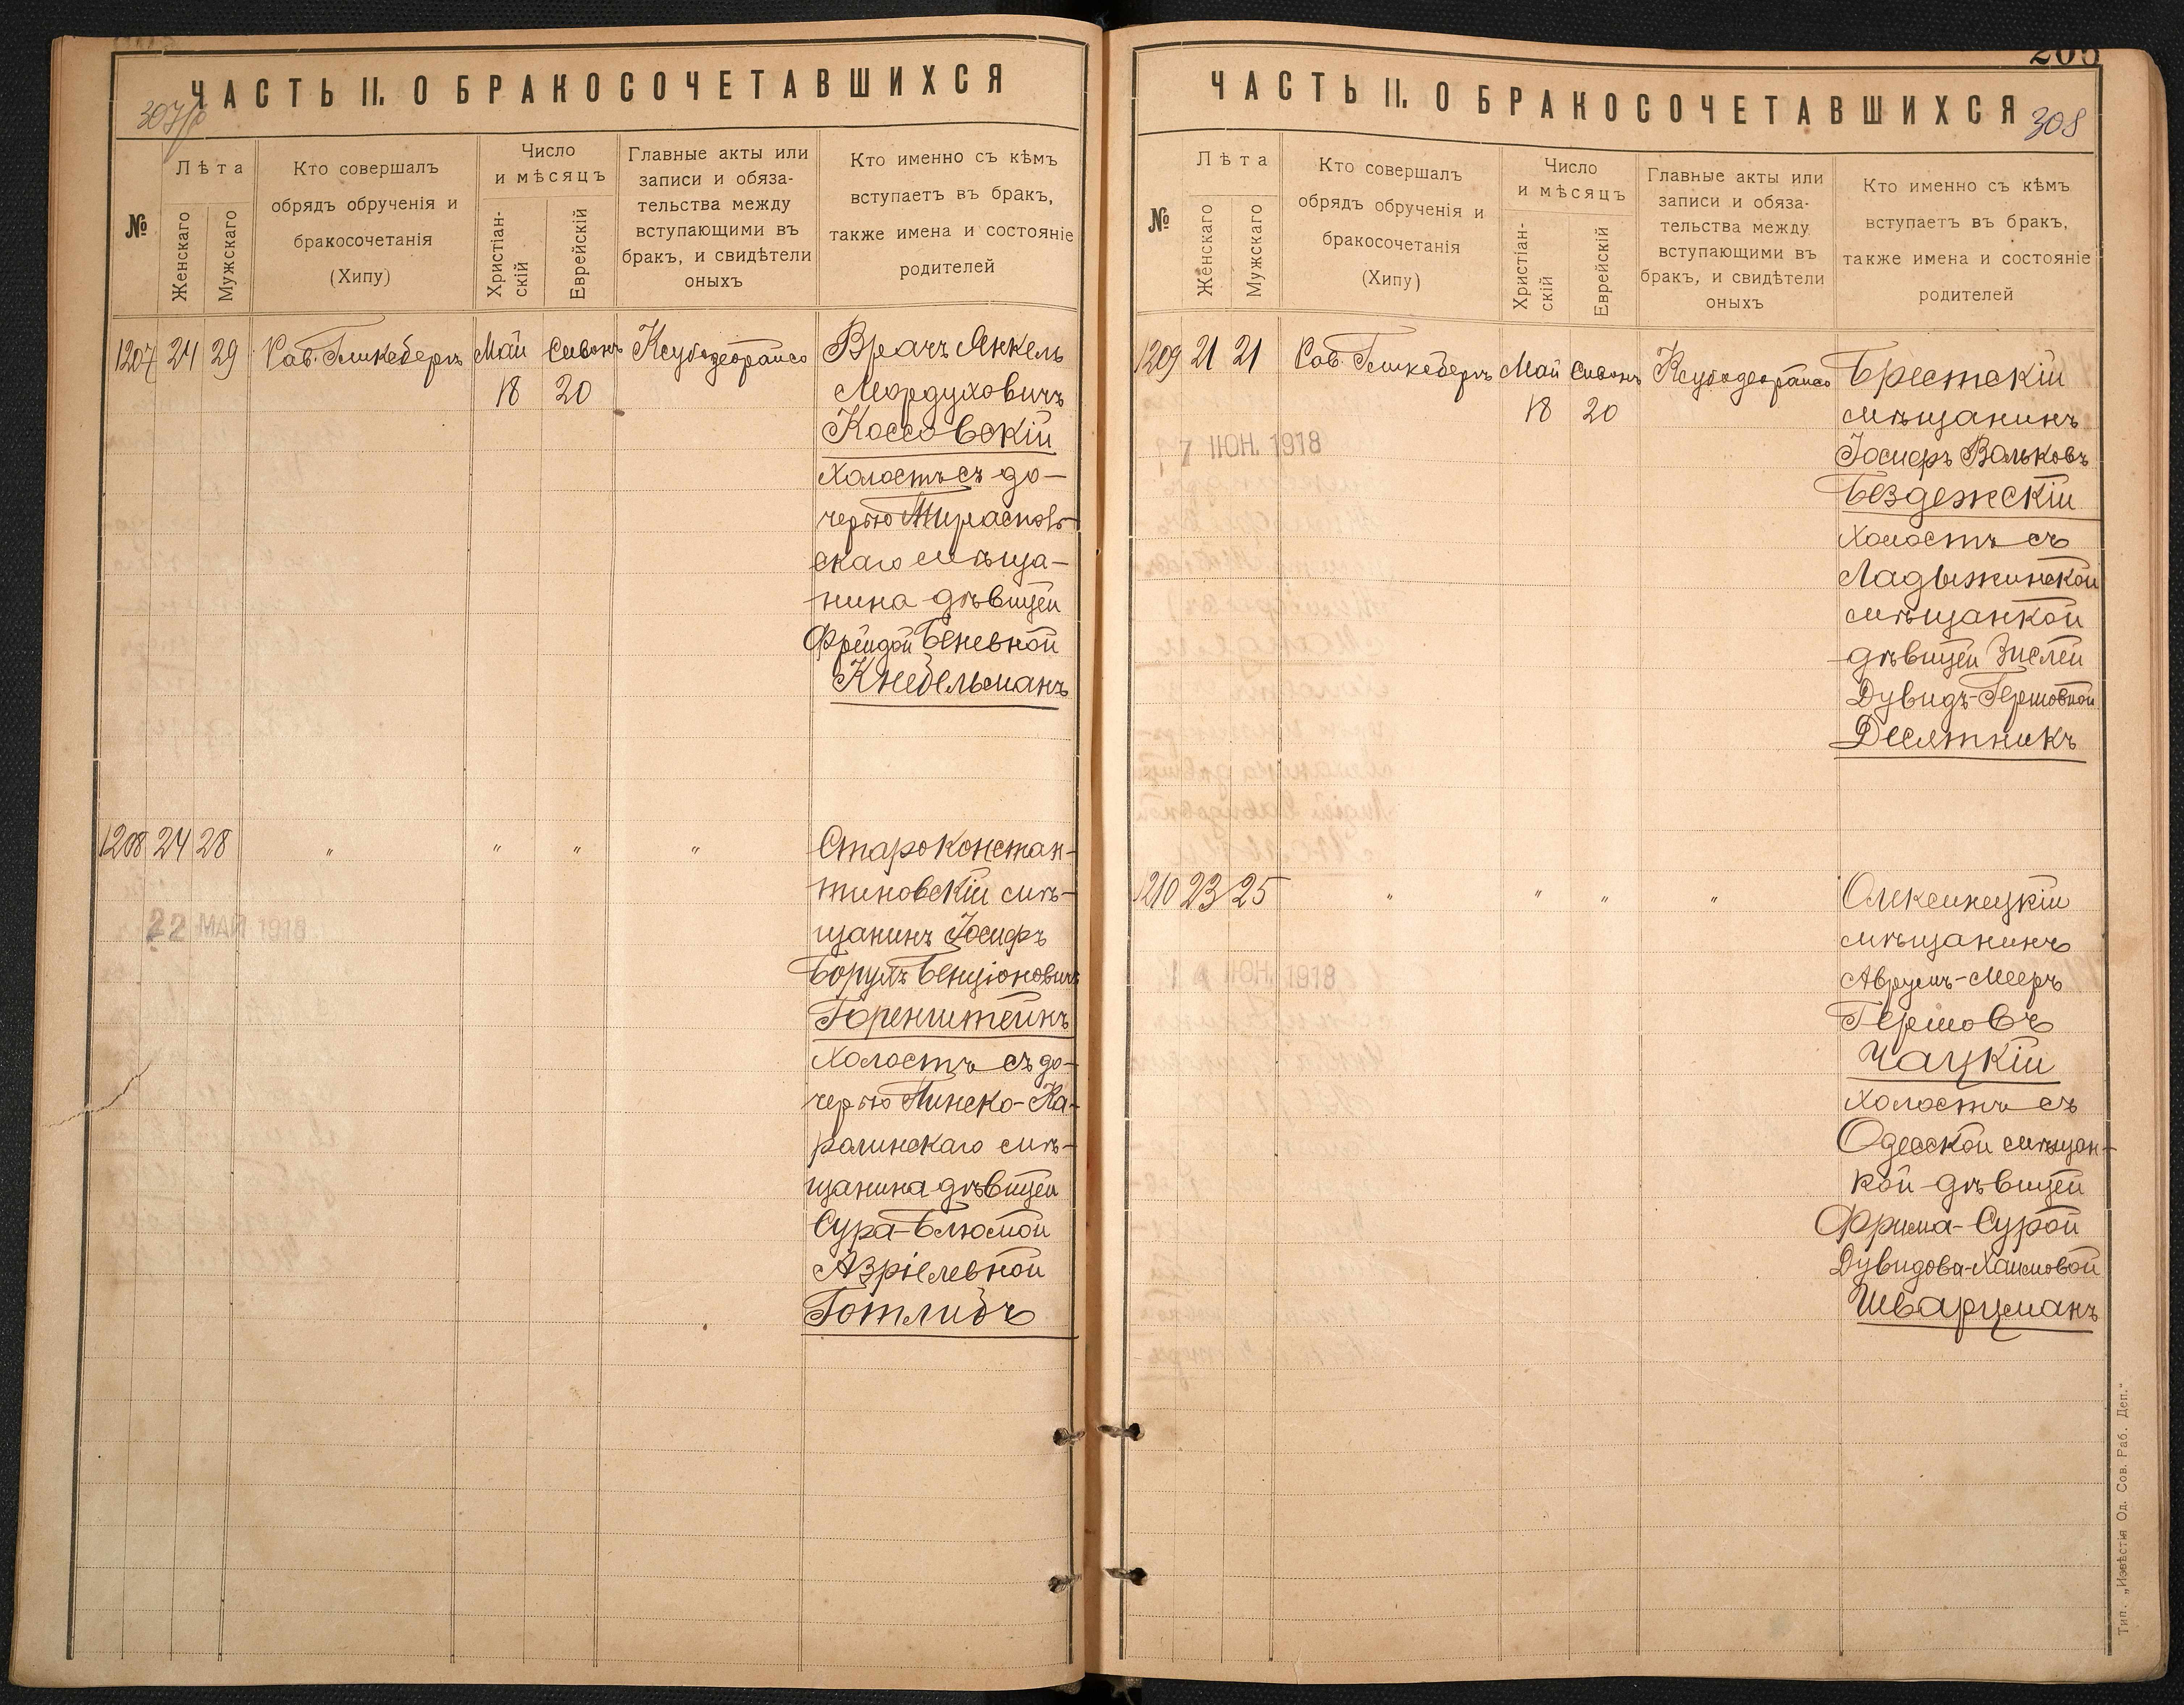 ЧАСТЬ II. О БРАКОСОЧЕТАВШИХСЯ
№
Лѣта
Женскаго
Мужскаго
Кто совершалъ
обрядъ обрученія и
бракосочетанія
(Хипу)
Число
и мѣсяцъ
Христіан-
скій
Еврейскій
Главные акты или
записи и обяза-
тельства между
вступающими въ
бракъ, и свидѣтели
оныхъ
Кто именно съ кѣмъ
вступаетъ въ бракъ,
также имена и состояніе
родителей
1207 24 29 Рав. Гликсбергъ Май Сивонъ
18 20
Врачъ Янкель
Мордуховичъ
Коссовскій
холостъ съ до-
черью Тирасполь-
скаго мѣща-
нина дѣвицей
Фрейдой Беневной
Кнебельманъ
1208 24 28 " " " "
22 МАЙ 1918
Староконстан-
тиновскій мѣ-
щанинъ Іосифъ
Борухъ Бенціоновичъ
Горенштейнъ
холостъ съ до-
черью Пинско-Ка-
ролинскаго мѣ-
щанина дѣвицей
Сура-Блюмой
Азріелевной
Готлибъ
205
ЧАСТЬ II. О БРАКОСОЧЕТАВШИХСЯ
308
№
Лѣта
Женскаго
Мужскаго
Кто совершалъ
обрядъ обрученія и
бракосочетанія
(Хипу)
Число
и мѣсяцъ
Христіан-
скій
Еврейскій
Главные акты или
записи и обяза-
тельства между
вступающими въ
бракъ, и свидѣтели
оныхъ
Кто именно съ кѣмъ
вступаетъ въ бракъ,
также имена и состояніе
родителей
1209 21 21 Рав. Гликсбергъ Май Сивонъ
18 20
7 ІЮН. 1918
Брестскій
мѣщанинъ
Іосифъ Вольковъ
Бездежскій
холостъ съ
Ладыжинской
мѣщанкой
дѣвицей Зислей
Дувидъ-Гершовной
Десятникъ
1210 23 25 " " " "
ІЮН. 1918
Олексинецкій
мѣщанинъ
Аврумъ-Мееръ
Гершовъ
Чацкій
холостъ съ
Одесской мѣщан-
кой дѣвицей
Фрима-Сурой
Дувидова-Хаимовой
Шварцманъ
Тип. „Извѣстія Од. Сов. Раб. Деп.“